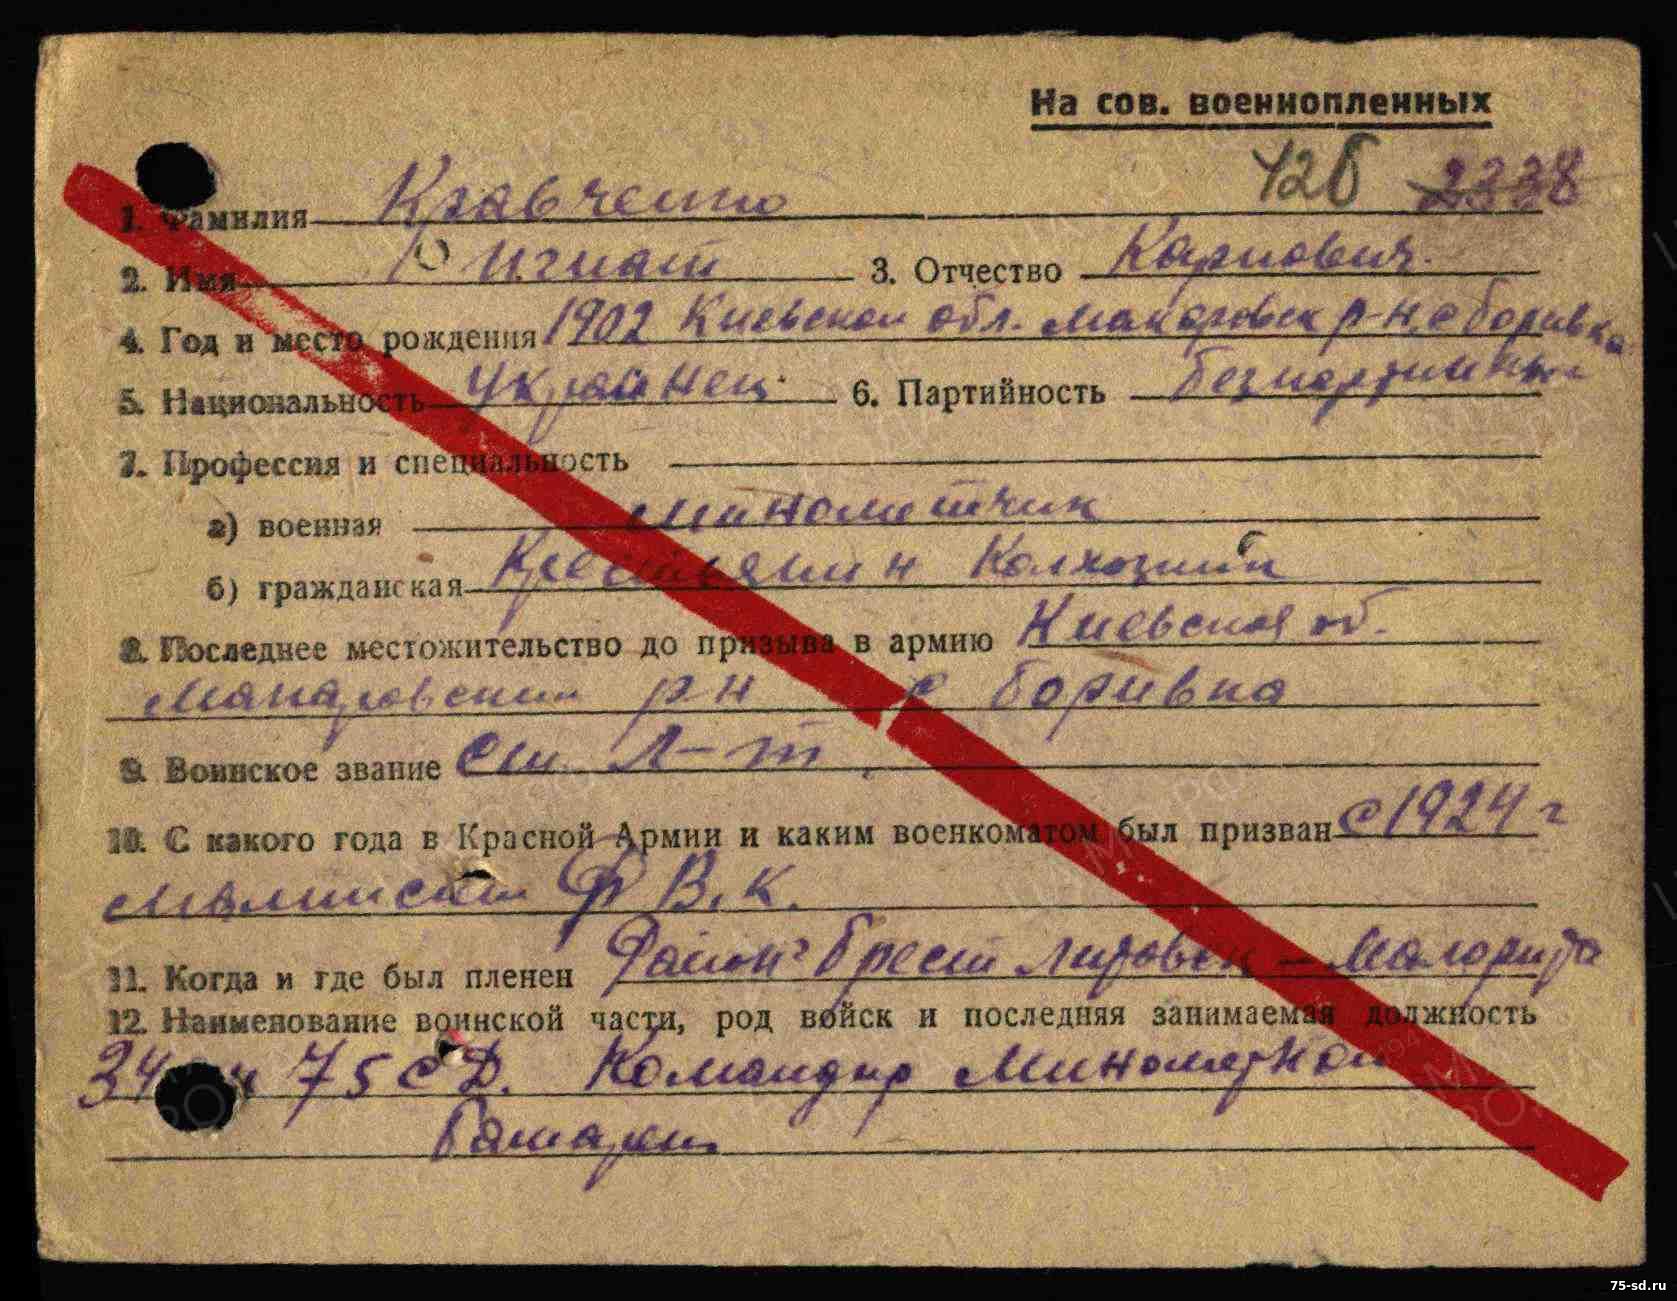 На сов. военнопленных
426 2338
1. Фамилия Кравченко
2. Имя Игнат 3. Отчество Карпович.
4. Год и место рождения 1902 Киевской обл. Макаровск р-н. с боривка
5. Национальность Украинец 6. Партийность безпартийный
7. Профессия и специальность
а) военная минометчик
б) гражданская Крестьянин Колхозник
8. Последнее местожительство до призыва в армию Киевская об.
Макаровский рн с боривка
9. Воинское звание ст. л-т
10. С какого года в Красной Армии и каким военкоматом был призван с 1924 г
В.К.
11. Когда и где был пленен Район Брест литовск – Малорита
12. Наименование воинской части, род войск и последняя занимаемая должность
34 75 сД. Командир Минометной
батареи
75-sd.ru